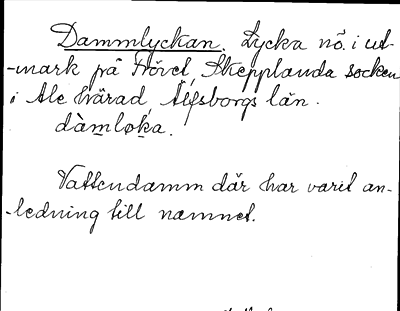 Dammlyckan. Lycka nö. i ut-
-mark på Prövet, Skepplanda socken
i Ale härad, Älfsborgs län.
dàmløka.
Vattendamm där har varit an-
-ledning till namnet.